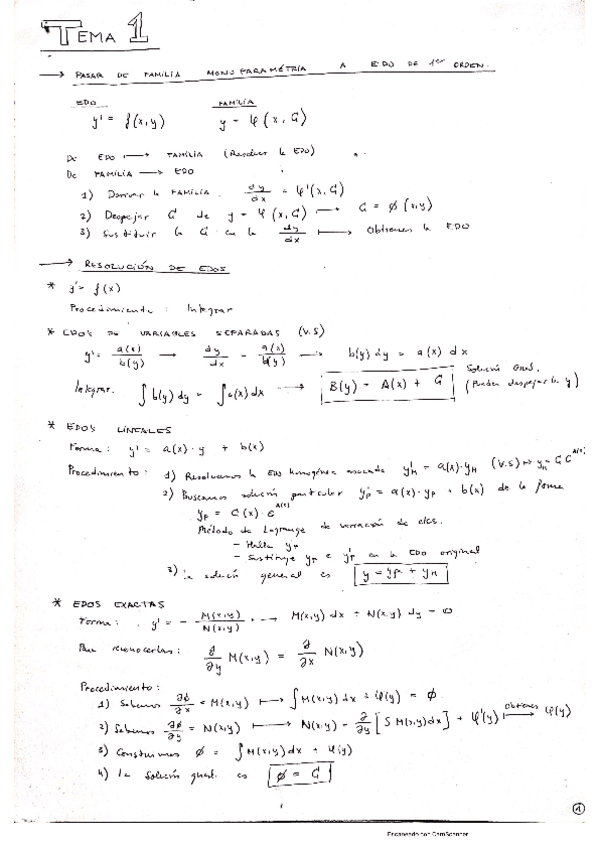 TEMA 1
→ PASAR DE FAMILIA MONOPARAMÉTRIA A EDO DE 1er ORDEN.
EDO FAMILIA
y' = f(x,y) y = φ(x,C)
De EDO ⟼ FAMILIA (Resolver la EDO)
De FAMILIA ⟶ EDO
1) Derivar la FAMILIA. dy/dx = φ'(x,C)
2) Despejar C de y = φ(x,C) ⟼ C = ϕ(x,y)
3) Sustituir la C en la dy/dx ⟼ Obtienes la EDO
→ RESOLUCIÓN DE EDOS
* y' = f(x)
Procedimiento: Integrar
* EDOs DE VARIABLES SEPARADAS (V.S)
y' = a(x)/b(y) ⟶ dy/dx = a(x)/b(y) ⟶ b(y) dy = a(x) dx
Integrar. ∫ b(y) dy = ∫ a(x) dx ⟶ B(y) = A(x) + C Solución Gral. (Pueden despejar la y)
* EDOS LINEALES
Forma: y' = a(x)·y + b(x)
Procedimiento: 1) Resolvemos la EDO homogénea asociada y'H = a(x)·yH (V.S) ↦ yH = C e^A(x)
2) Buscamos solución particular y'P = a(x)·yP + b(x) de la forma
yP = C(x)·e^A(x)
Método de Lagrange de variación de ctes.
- Halla y'P
- Sustituye yP e y'P en la EDO original
3) La solución general es y = yP + yH
* EDOS EXACTAS
Forma: y' = - M(x,y)/N(x,y) ⟶ M(x,y) dx + N(x,y) dy = 0
Para reconocerlas: ∂/∂y M(x,y) = ∂/∂x N(x,y)
Procedimiento:
1) Sabemos ∂ϕ/∂x = M(x,y) ⟼ ∫ M(x,y) dx + φ(y) = ϕ
2) Sabemos ∂ϕ/∂y = N(x,y) ⟼ N(x,y) = ∂/∂y [∫ M(x,y) dx] + φ'(y) obtienes ⟼ φ(y)
3) Construimos ϕ = ∫ M(x,y) dx + φ(y)
4) La solución gral. es ϕ = C
1
Escaneado con CamScanner